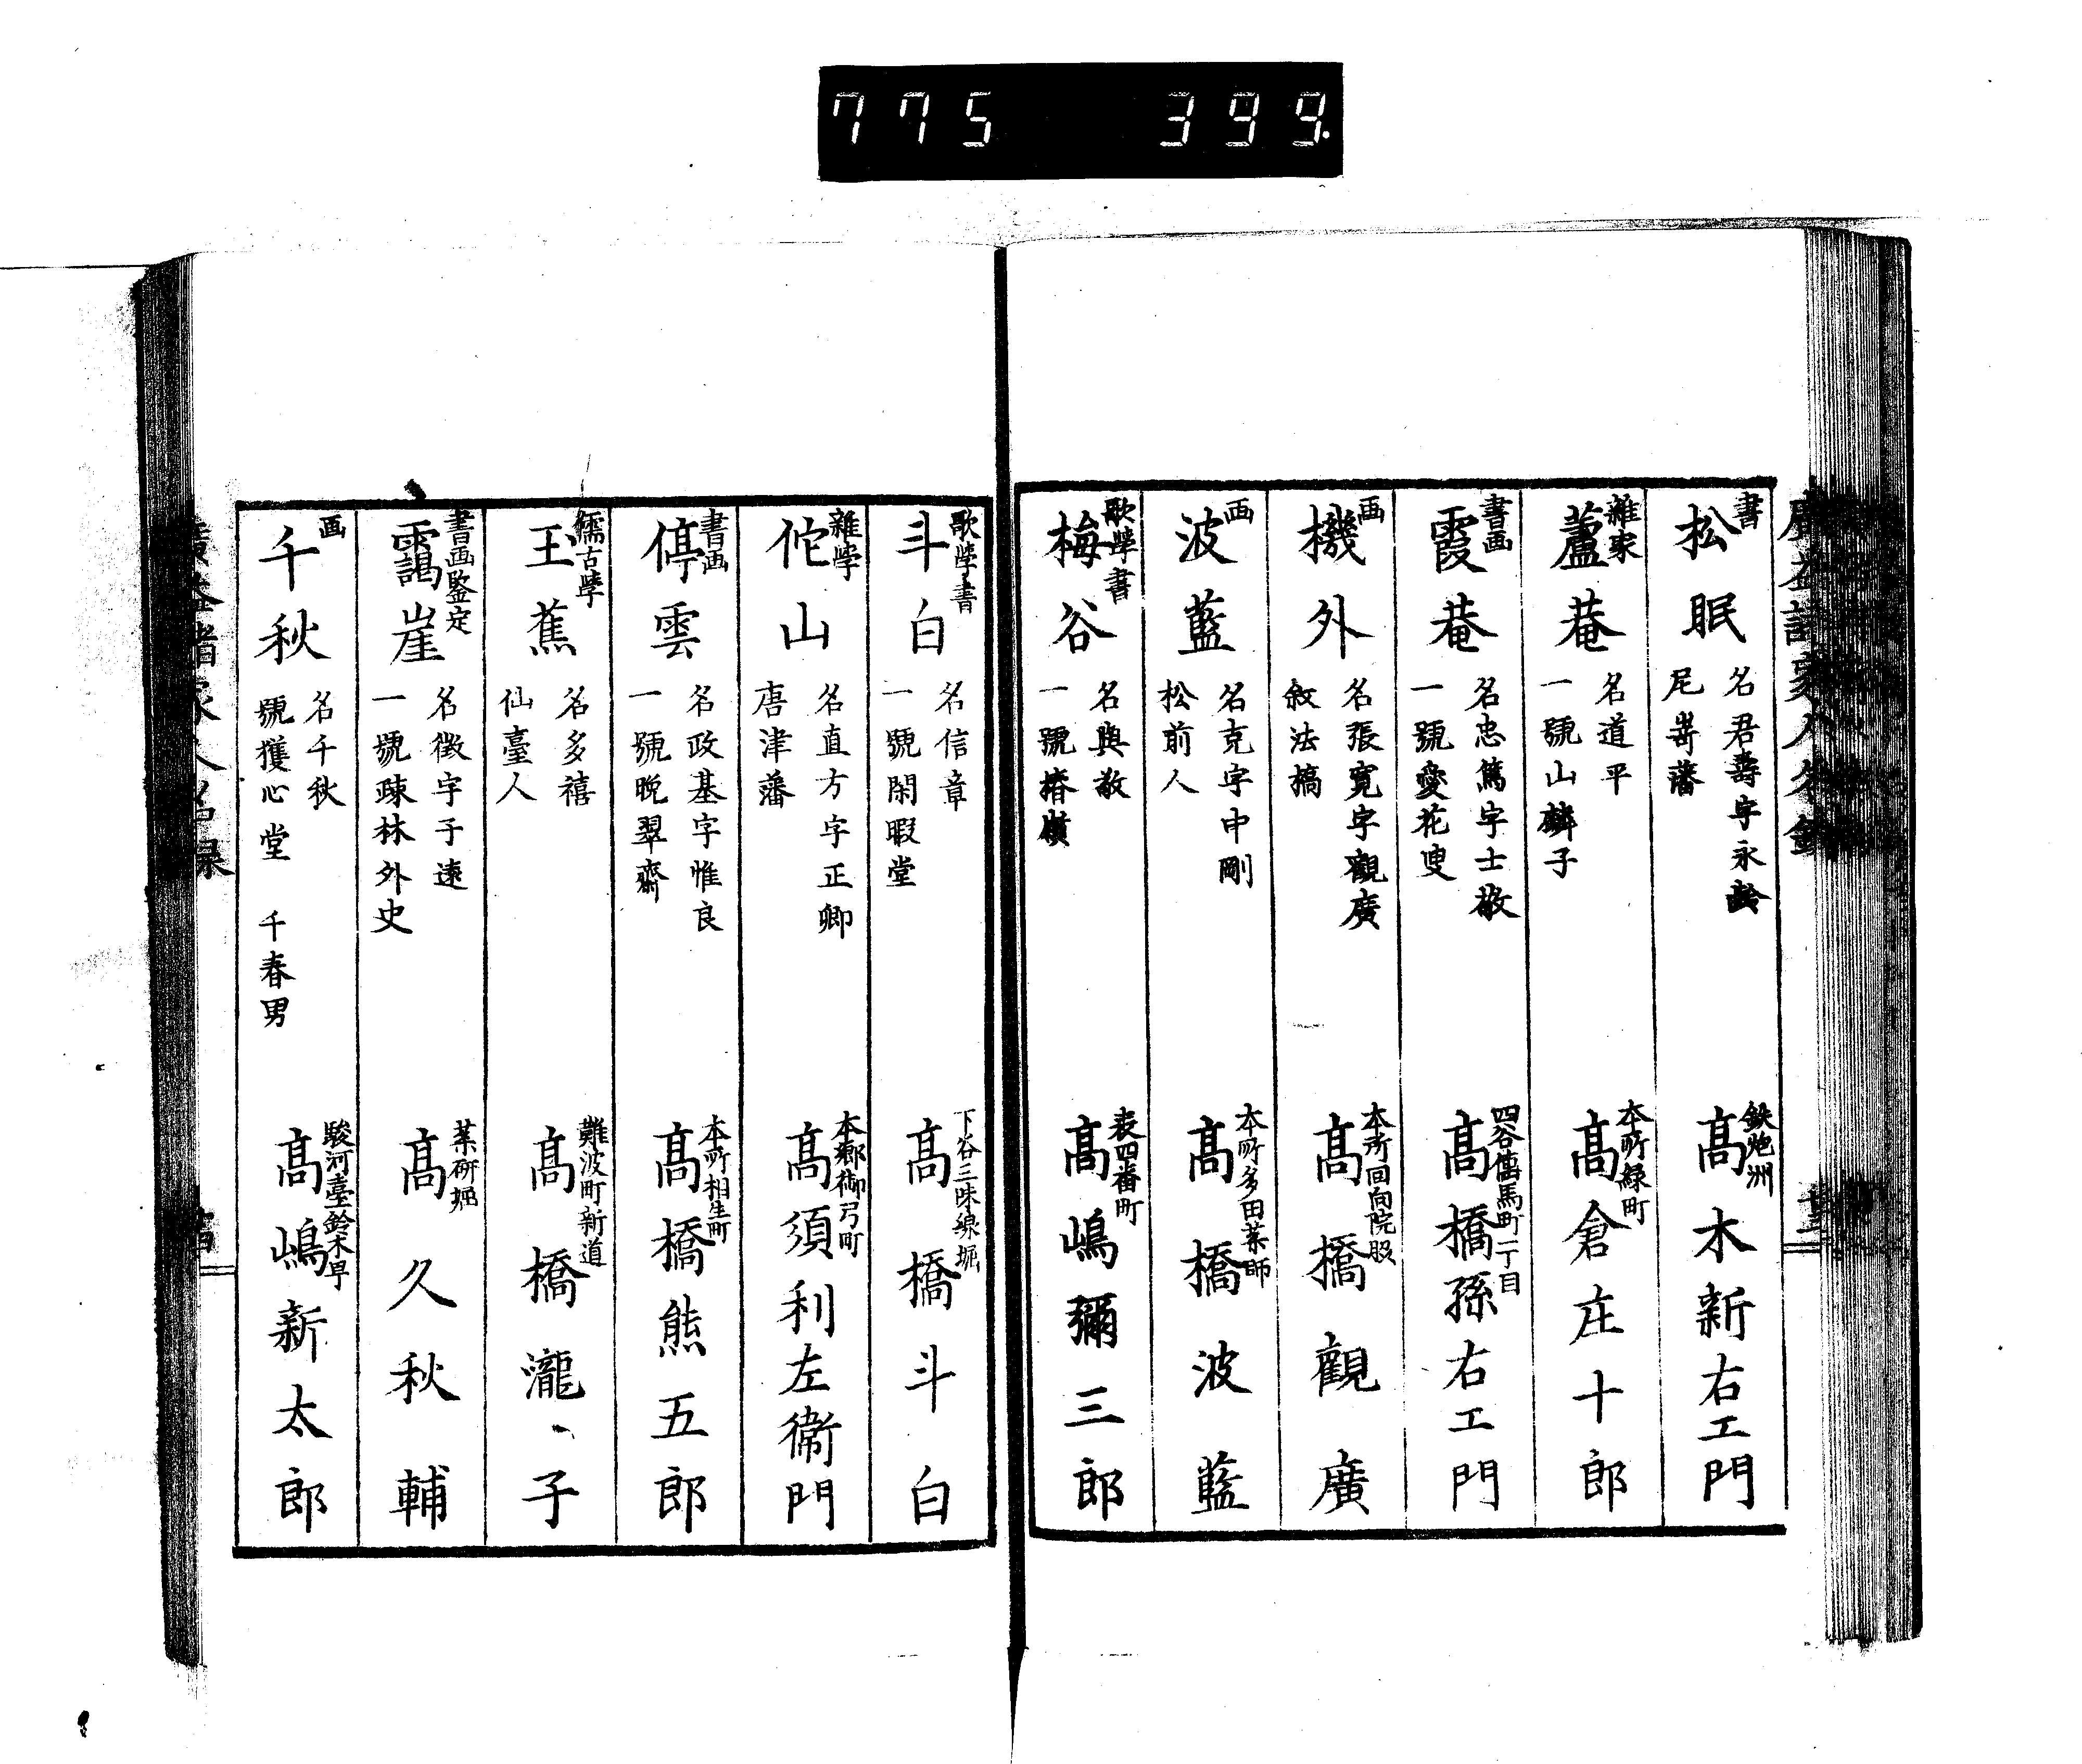 775 399.
書
松眠
名君壽字永齡
尼嵜藩
鉄炮洲
髙木新右エ門
雜家
蘆菴
名道平
一號山麟子
本所緑町
髙倉庄十郎
書画
霞菴
名忠篤字士敬
一號愛花叟
四谷傳馬町一丁目
髙橋孫右エ門
画
機外
名張寛字觀廣
敘法槁
本所回向院
髙橋觀廣
画
波藍
名克字中剛
松前人
本所多田薬師
髙橋波藍
歌學書
梅谷
名與敬
一號椿
表四番町
髙嶋彌三郎
歌學書
斗白
名信章
一號閑暇堂
下谷三味線堀
髙橋斗白
雜學
佗山
名直方字正卿
唐津藩
本郷御弓町
髙須利左衛門
書画
停雲
名政基字惟良
一號晩翠齋
本所相生町
髙橋熊五郎
儒古學
玉蕉
名多禧
仙臺人
難波町新道
髙橋瀧、子
書画鑒定
靄崖
名徴字子遠
一號疎林外史
薬研堀
髙久秋輔
画
千秋
名千秋
號獲心堂 千春男
駿河臺鈴木早
髙嶋新太郎